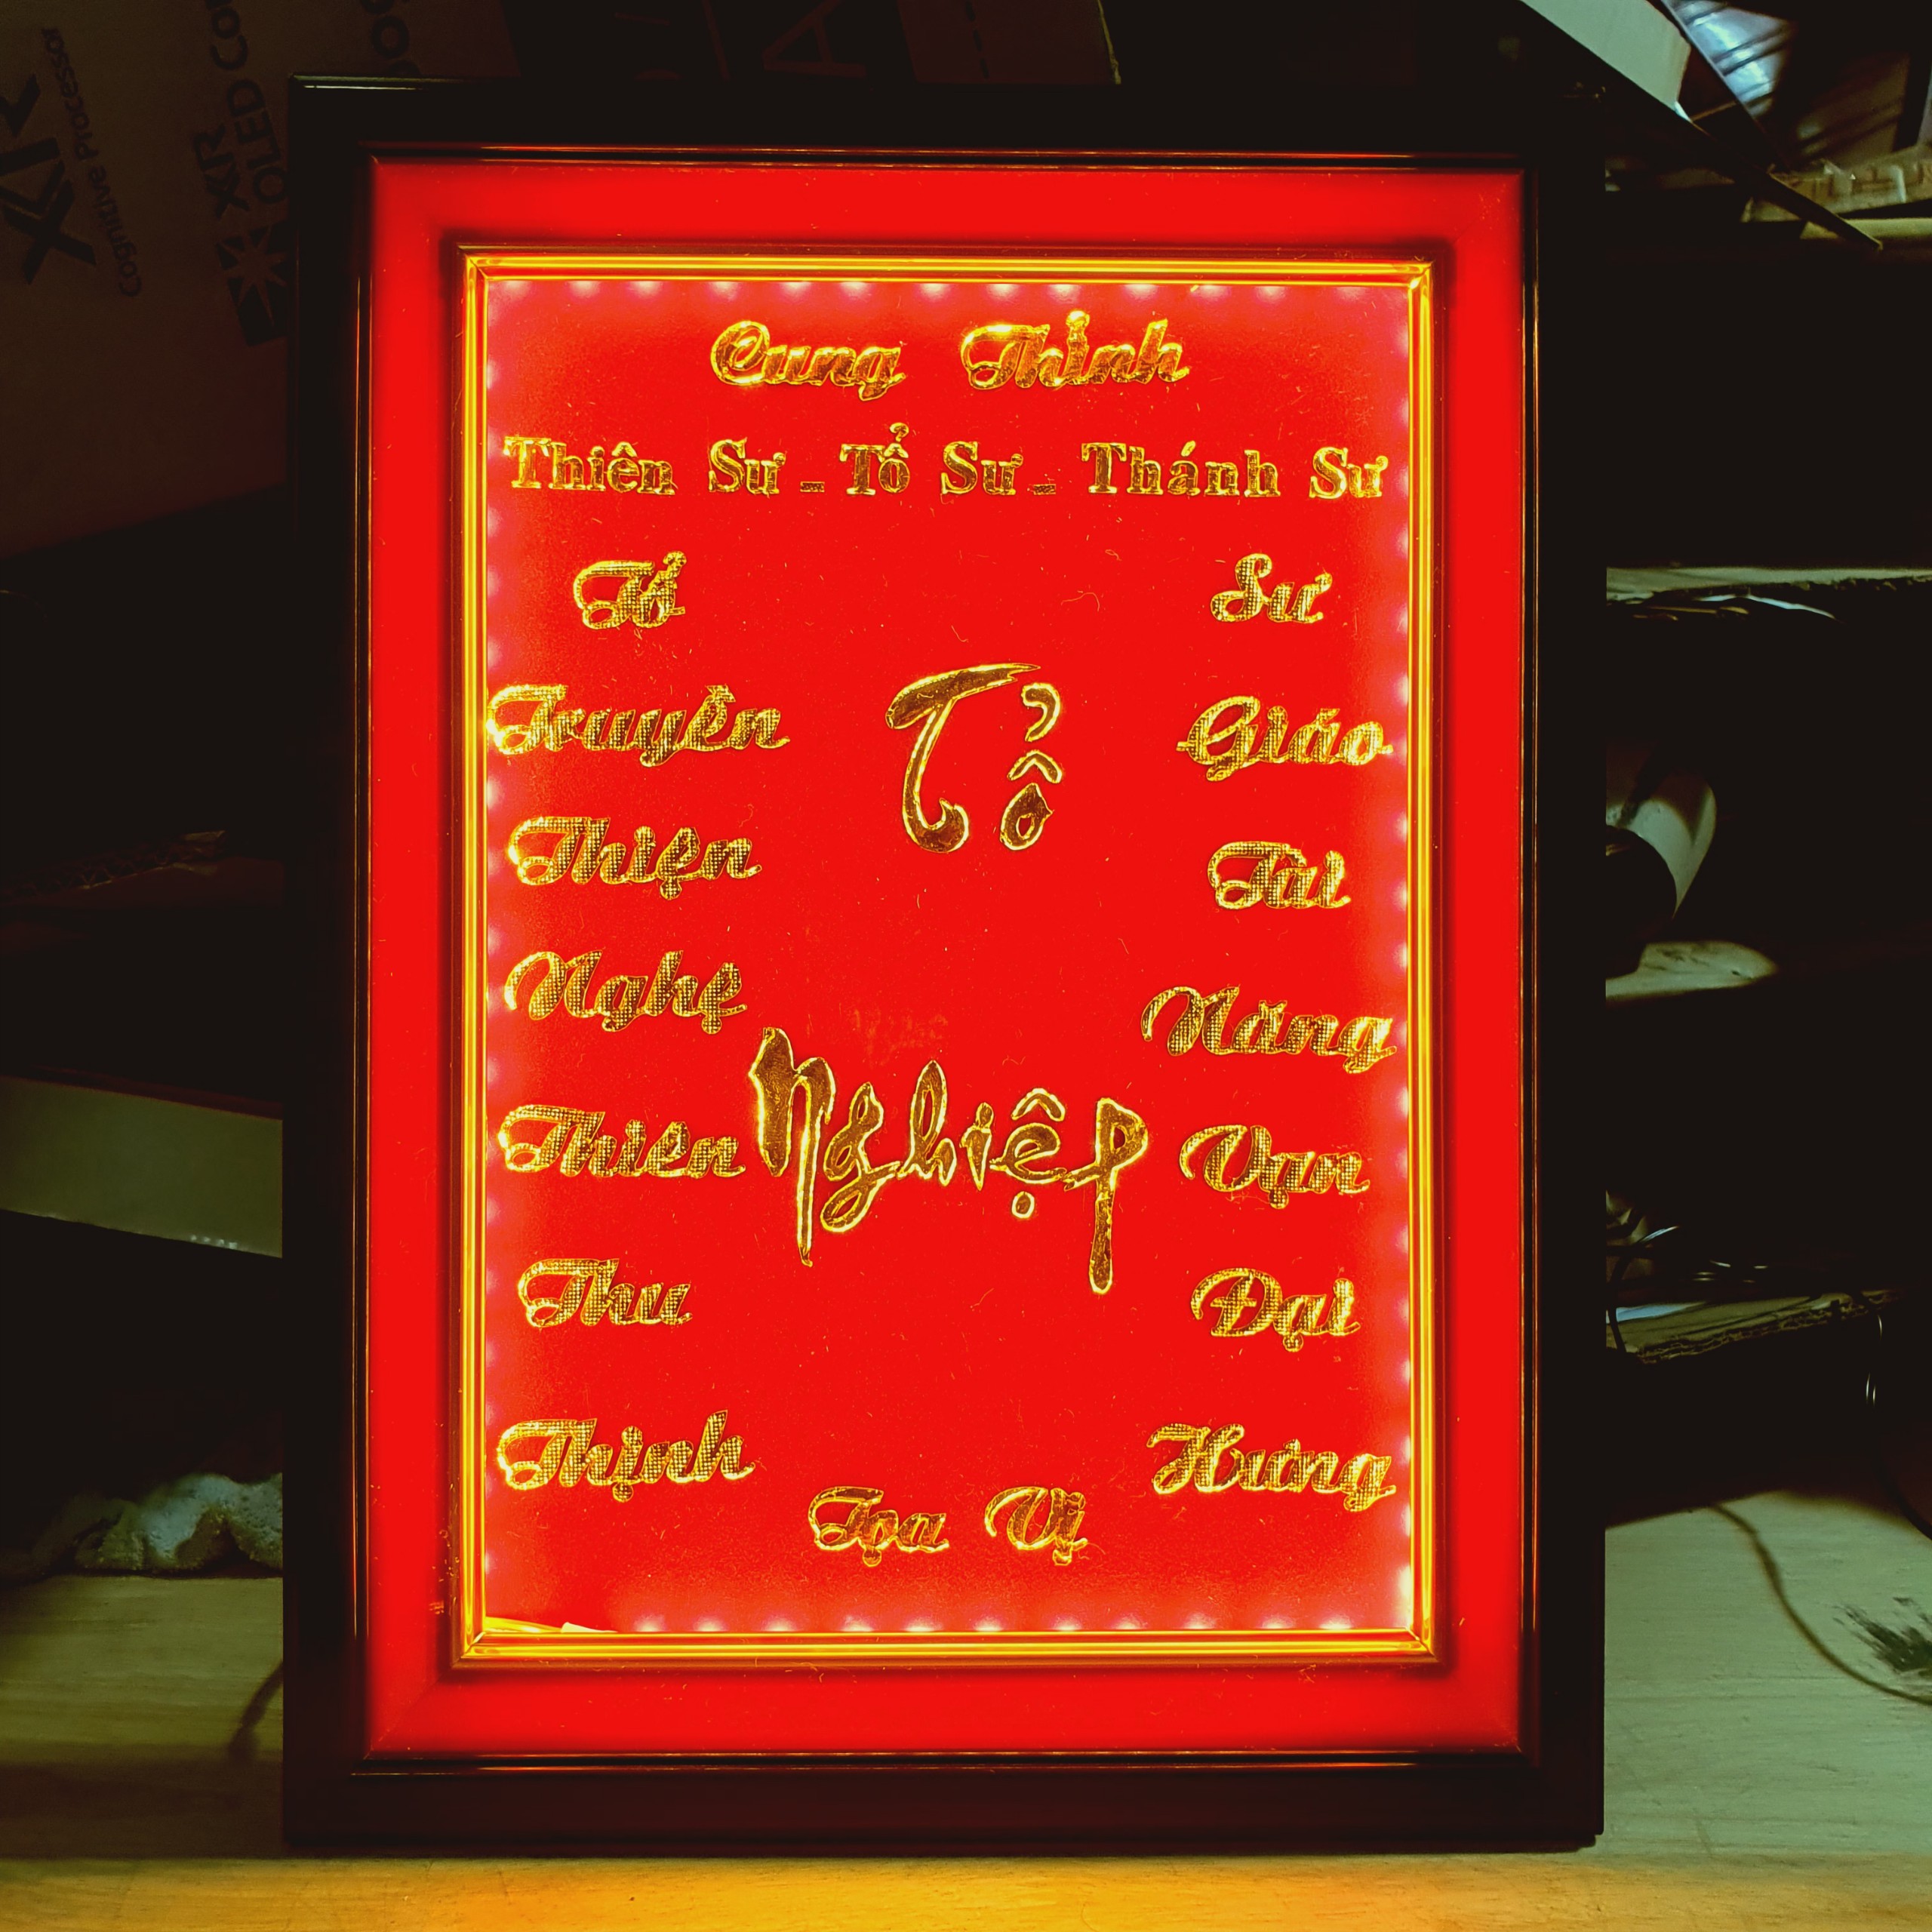 XR
Cognitive Processor
XR
OLED Co
Cung Thỉnh
Thiên Sư - Tổ Sư - Thánh Sư
Tổ
Truyền
Thiện
Nghệ
Thiên
Thu
Thịnh
Tổ
Nghiệp
Sư
Giáo
Tài
Năng
Vạn
Đại
Hưng
Tọa Vị